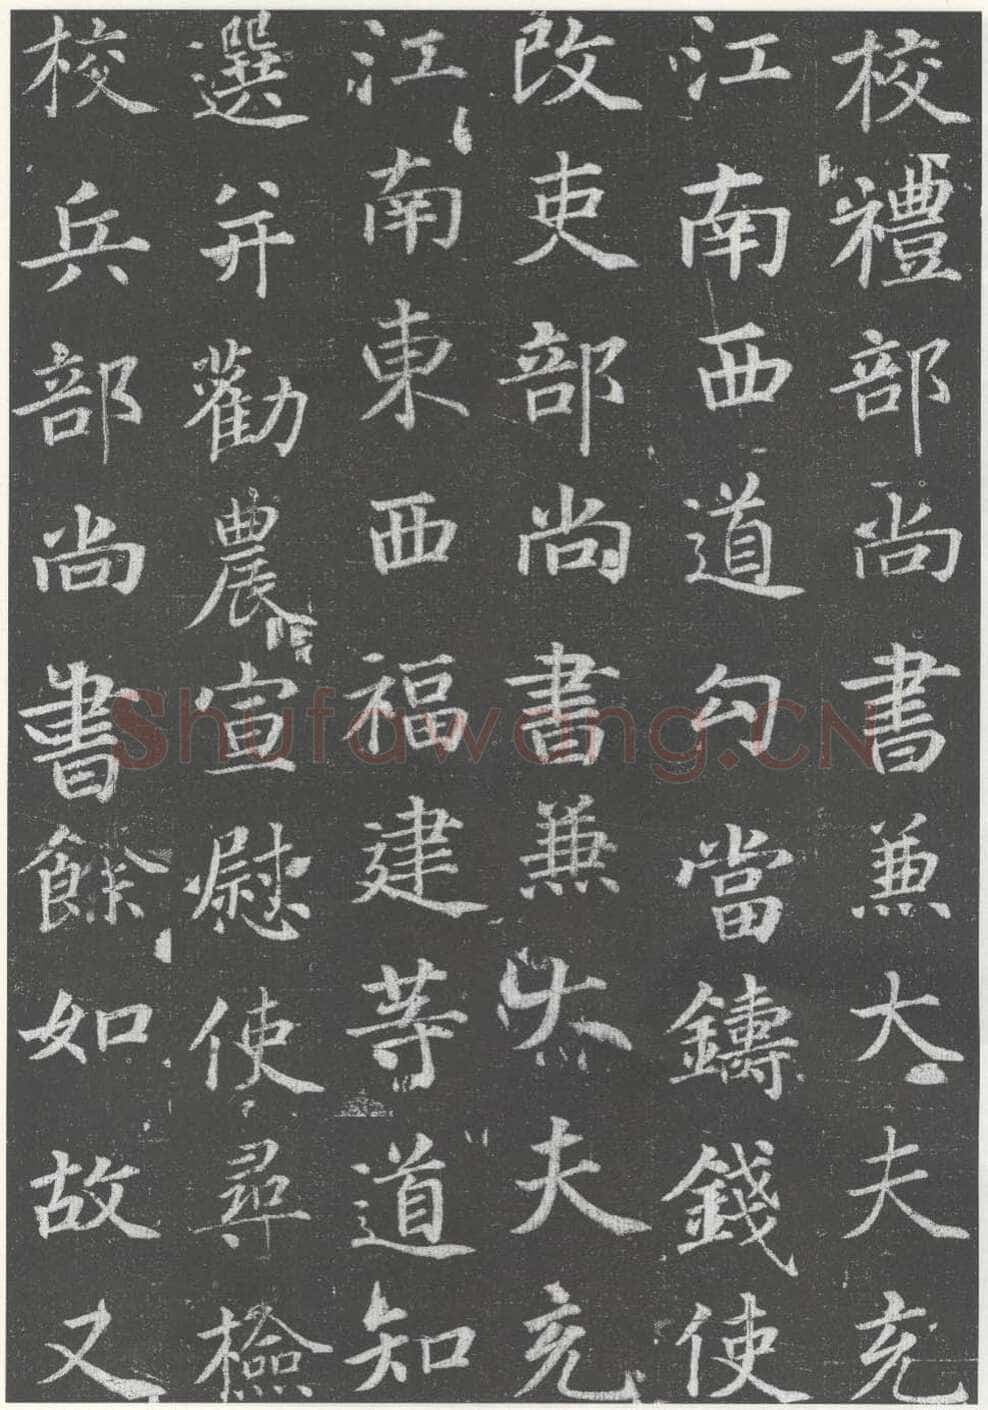 校禮部尚書兼大夫充
江南西道勾當鑄錢使
改吏部尚書兼大夫充
江南東西福建等道知
選并勸農宣慰使尋檢
校兵部尚書餘如故又
Shufawang.CN